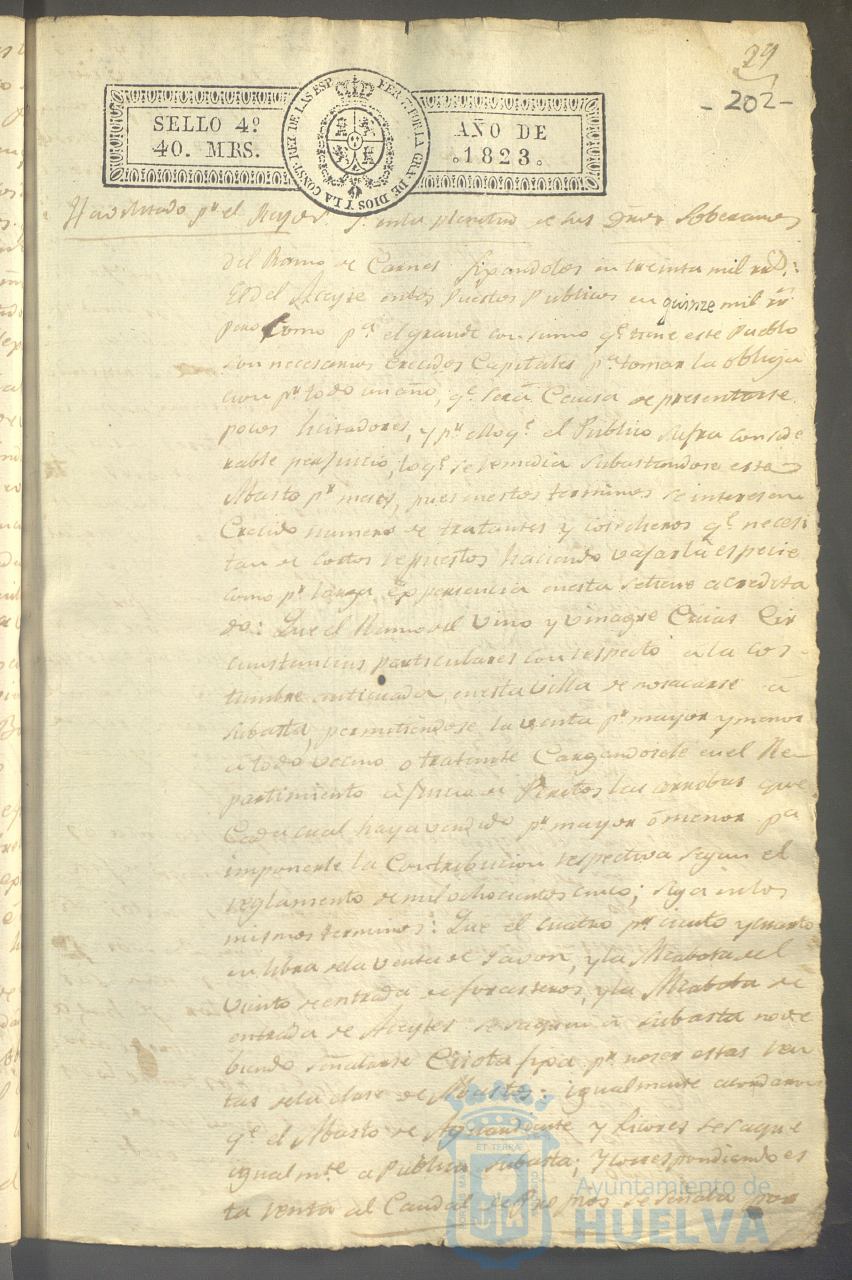 29
- 202 -
SELLO 4º
40. MRS.
FER. 7. POR LA GRA. DE DIOS Y LA CONST. REI DE LAS ESP.
AÑO DE
1823.
Havilitado pr. el Rey en la plenitud de sus Soberanos
del Ramo de Carnes fixandolos en treinta mil rs.:
El del Aceyte en los Puestos Publicos en quinze mil rs.
pero como pa. el grande consumo qe. tiene este Pueblo
son necesarios crecidos Capitales pa. tomar la obliga
cion pr. todo un año, qe. será Causa de presentarse
pocos licitadores, y pr. ello qe. el Publico sufra conside
rable perjuicio, lo qe. se remedia subastandose este
Abasto pr. meses, pues en estos terminos se interesen
Crecido numero de tratantes y cosecheros qe. necesi
tan de cortos repuestos haciendo vajar la especie
como pr. larga Experiencia en esta se tiene acredita
do: Que el Ramo del Vino y Vinagre Cir
cunstancias particulares con respecto a la cos-
tumbre anticuada en esta Villa de no sacarse á
subasta, permitiendose la venta pr. mayor y menor
á todo Vecino o tratante Cargandosele en el Re
partimiento á Juicio de Peritos las arrobas que
Cada cual haya vendido pr. mayor ó menor pa.
imponerle la Contribucion respectiva segun el
reglamento de mil ochocientos cinco; siga en los
mismos terminos: Que el cuatro pr. ciento y cuarto
en libra de la Venta de Javon, y la Alcabala del
Viento de entrada de forasteros, y la Alcabala de
entrada de Aceytes se saquen á subasta no de
biendo señalarse Cuota fixa pr. no ser estas ren
tas de la clase de Abastos: igualmente acordaron
qe. el Abasto de Aguardiente y Licores se saque
igualmte. a Publica Subasta; y correspondiendo es
ta renta al Caudal de Propios se señala por
Ayuntamiento de
HUELVA